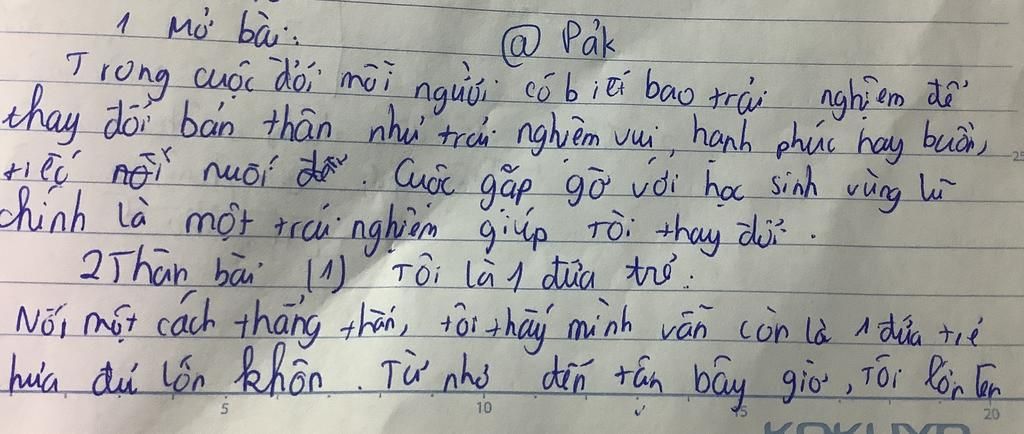 1 Mở bài:
@ Pảk
Trong cuộc đời mỗi người có biết bao trải nghiệm để
thay đổi bản thân như trải nghiệm vui, hạnh phúc hay buồn,
tiếc nối nuối. Cuộc gặp gỡ với học sinh vùng lũ
chính là một trải nghiệm giúp tôi thay đổi.
2 Thân bài (1) Tôi là 1 đứa trẻ.
Nói một cách thẳng thắn, tôi thấy mình vẫn còn là 1 đứa trẻ
hưa đủ lớn khôn. Từ nhỏ đến tân bây giờ, tôi lớn lên
5 10 15 20
25
KOKUYO